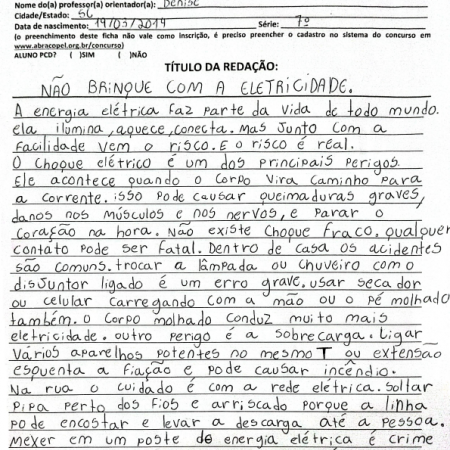 Nome do(a) professor(a) orientador(a): Denise
Cidade/Estado: SC
Data de nascimento: 19/03/2014 Série: 7º
(o preenchimento desta ficha não vale como inscrição, é preciso preencher o cadastro no sistema do concurso em
www.abracopel.org.br/concurso)
ALUNO PCD? ( )SIM ( )NÃO
TÍTULO DA REDAÇÃO:
NÃO BRINQUE COM A ELETRICIDADE.
A energia elétrica faz parte da vida de todo mundo.
ela ilumina, aquece, conecta. Mas junto com a
facilidade vem o risco. E o risco é real.
O choque elétrico é um dos principais perigos.
Ele acontece quando o corpo vira caminho para
a corrente. isso pode causar queimaduras graves,
danos nos músculos e nos nervos, e parar o
coração na hora. Não existe choque fraco, qualquer
contato pode ser fatal. Dentro de casa os acidentes
são comuns. trocar a lâmpada ou chuveiro com o
disjuntor ligado é um erro grave. usar secador
ou celular carregando com a mão ou o pé molhado
também. o corpo molhado conduz muito mais
eletricidade. outro perigo é a sobrecarga. Ligar
vários aparelhos potentes no mesmo T ou extensão
esquenta a fiação e pode causar incêndio.
Na rua o cuidado é com a rede elétrica. Soltar
pipa perto dos fios e arriscado porque a linha
pode encostar e levar a descarga até a pessoa.
Mexer em um poste de energia elétrica é crime